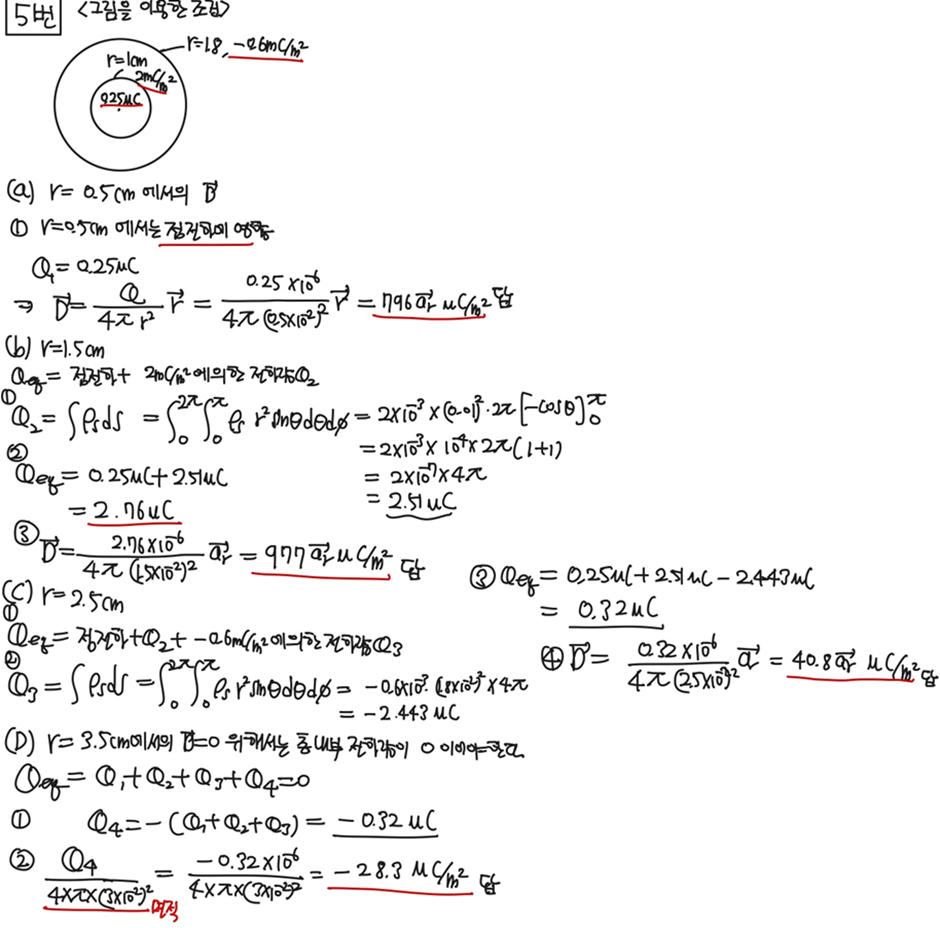 5번 <그림을 이용한 조건>
r=1.8, -0.6mC/m²
r=1cm
2mC/m²
0.25μC
(a) r= 0.5cm 에서의 D⃗
① r=0.5cm 에서는 점전하의 영향
Q₁= 0.25μC
⇒ D⃗= Q/4πr² r⃗ = 0.25×10⁻⁶/4π(0.5×10⁻²)² r⃗ = 796 a⃗r μC/m² 답
(b) r=1.5cm
Qeq= 점전하+ 2mC/m²에의한 전하량Q₂
① Q₂= ∫ρsds = ∫₀^2π ∫₀^π ρs r²sinθdθdφ = 2×10⁻³×(0.01)²·2π[-cosθ]₀^π
=2×10⁻³×10⁻⁴×2π(1+1)
② Qeq= 0.25μC+2.51μC = 2×10⁻⁷×4π
= 2.76μC = 2.51μC
③ D⃗= 2.76×10⁻⁶/4π(1.5×10⁻²)² a⃗r = 977 a⃗r μC/m² 답
(C) r=2.5cm
① Qeq= 점전하+Q₂+ -0.6mC/m²에의한전하량Q₃
② Q₃= ∫ρsds = ∫₀^2π ∫₀^π ρs r²sinθdθdφ = -0.6×10⁻³·(1.8×10⁻²)²×4π
= -2.443μC
③ Qeq= 0.25μC+2.51μC-2.443μC
= 0.32μC
④ D⃗= 0.32×10⁻⁶/4π(2.5×10⁻²)² a⃗ = 40.8 a⃗r μC/m² 답
(D) r= 3.5cm에서의 D⃗=0 위해서는 총내부 전하량이 0 이어야한다.
Qeq= Q₁+Q₂+Q₃+Q₄=0
① Q₄=-(Q₁+Q₂+Q₃) = -0.32μC
② Q₄/4×π×(3×10⁻²)² = -0.32×10⁻⁶/4×π×(3×10⁻²)² = -28.3 μC/m² 답
면적